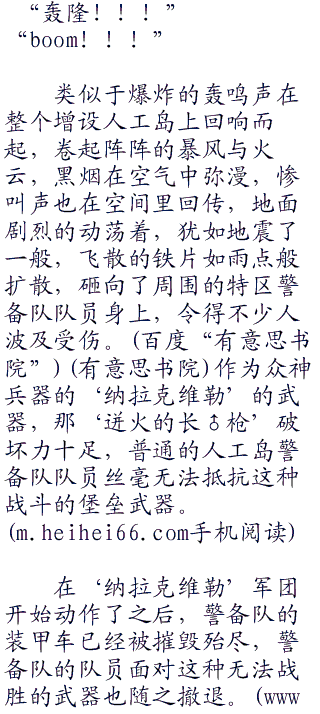 “轰隆！！！”
“boom！！！”
类似于爆炸的轰鸣声在
整个增设人工岛上回响而
起，卷起阵阵的暴风与火
云，黑烟在空气中弥漫，惨
叫声也在空间里回传，地面
剧烈的动荡着，犹如地震了
一般，飞散的铁片如雨点般
扩散，砸向了周围的特区警
备队队员身上，令得不少人
波及受伤。(百度“有意思书
院”)(有意思书院)作为众神
兵器的‘纳拉克维勒’的武
器，那‘迸火的长♂枪’破
坏力十足，普通的人工岛警
备队队员丝毫无法抵抗这种
战斗的堡垒武器。
(m.heihei66.com手机阅读)
在‘纳拉克维勒’军团
开始动作了之后，警备队的
装甲车已经被摧毁殆尽，警
备队的队员面对这种无法战
胜的武器也随之撤退。(www